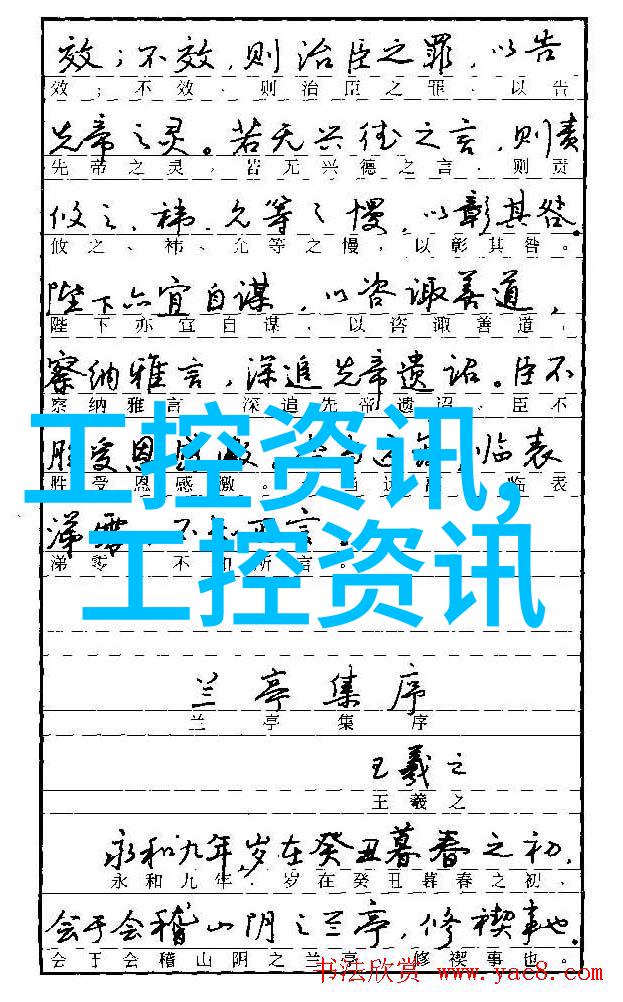 效；不效，则治臣之罪，以告
效；不效、则治臣之罪、以告
先帝之灵。若无兴德之言，则责
先帝之灵，若无兴德之言、则责
攸之、祎、允等之慢，以彰其咎。
攸之、祎、允等之慢，以彰其咎。
陛下亦宜自谋，以咨诹善道，
陛下亦宜自谋，以咨诹善道，
察纳雅言，深追先帝遗诏。臣不
察纳雅言 深追先帝遗诏，臣不
胜受恩感激。 临表
胜受恩感激。 临表
工控资讯,
涕零 不 言。
涕零 不知所言。
工控资讯
兰亭集序
兰亭集序
王羲之
王羲之
永和九年，岁在癸丑暮春之初，
永和九年，岁在癸丑暮春之初、
会于会稽山阴之兰亭，修禊事也。
会于会稽山阴之兰亭 修禊事也。
书法欣赏 www.yac8.com